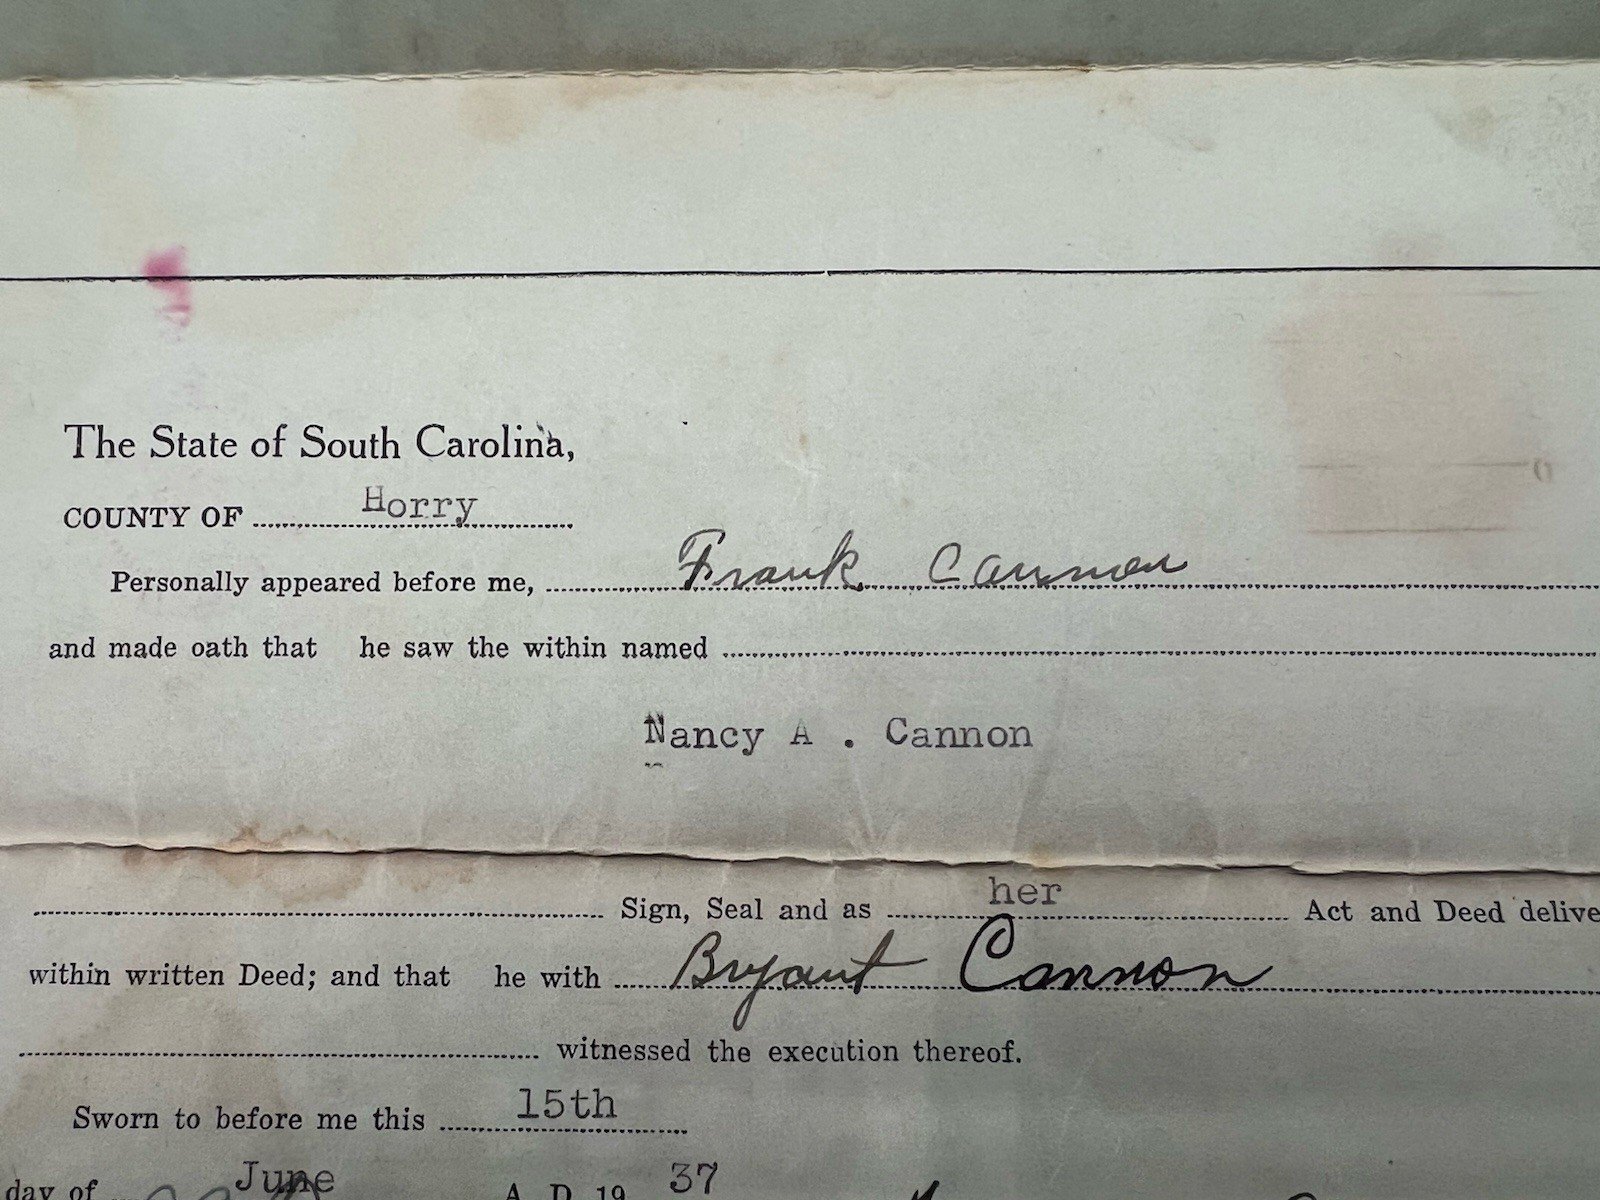 The State of South Carolina,
COUNTY OF Horry
Personally appeared before me, Frank Cannon
and made oath that he saw the within named
Nancy A . Cannon
Sign, Seal and as her Act and Deed delive
within written Deed; and that he with Bryant Cannon
witnessed the execution thereof.
Sworn to before me this 15th
day of June A. D. 19 37